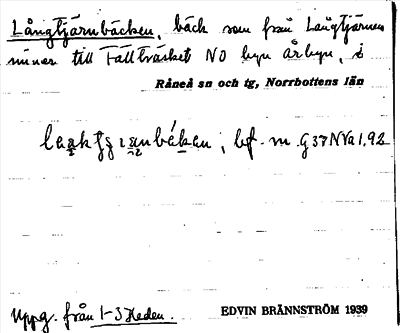 Långtjärnbäcken, bäck som från Långtjärnen
rinner till Fällträsket NO byn Årbyn, i
Råneå sn och tg, Norrbottens län
bf. m. G37NVa1,92
Uppg. från 1-3 Heden.
EDVIN BRÄNNSTRÖM 1939